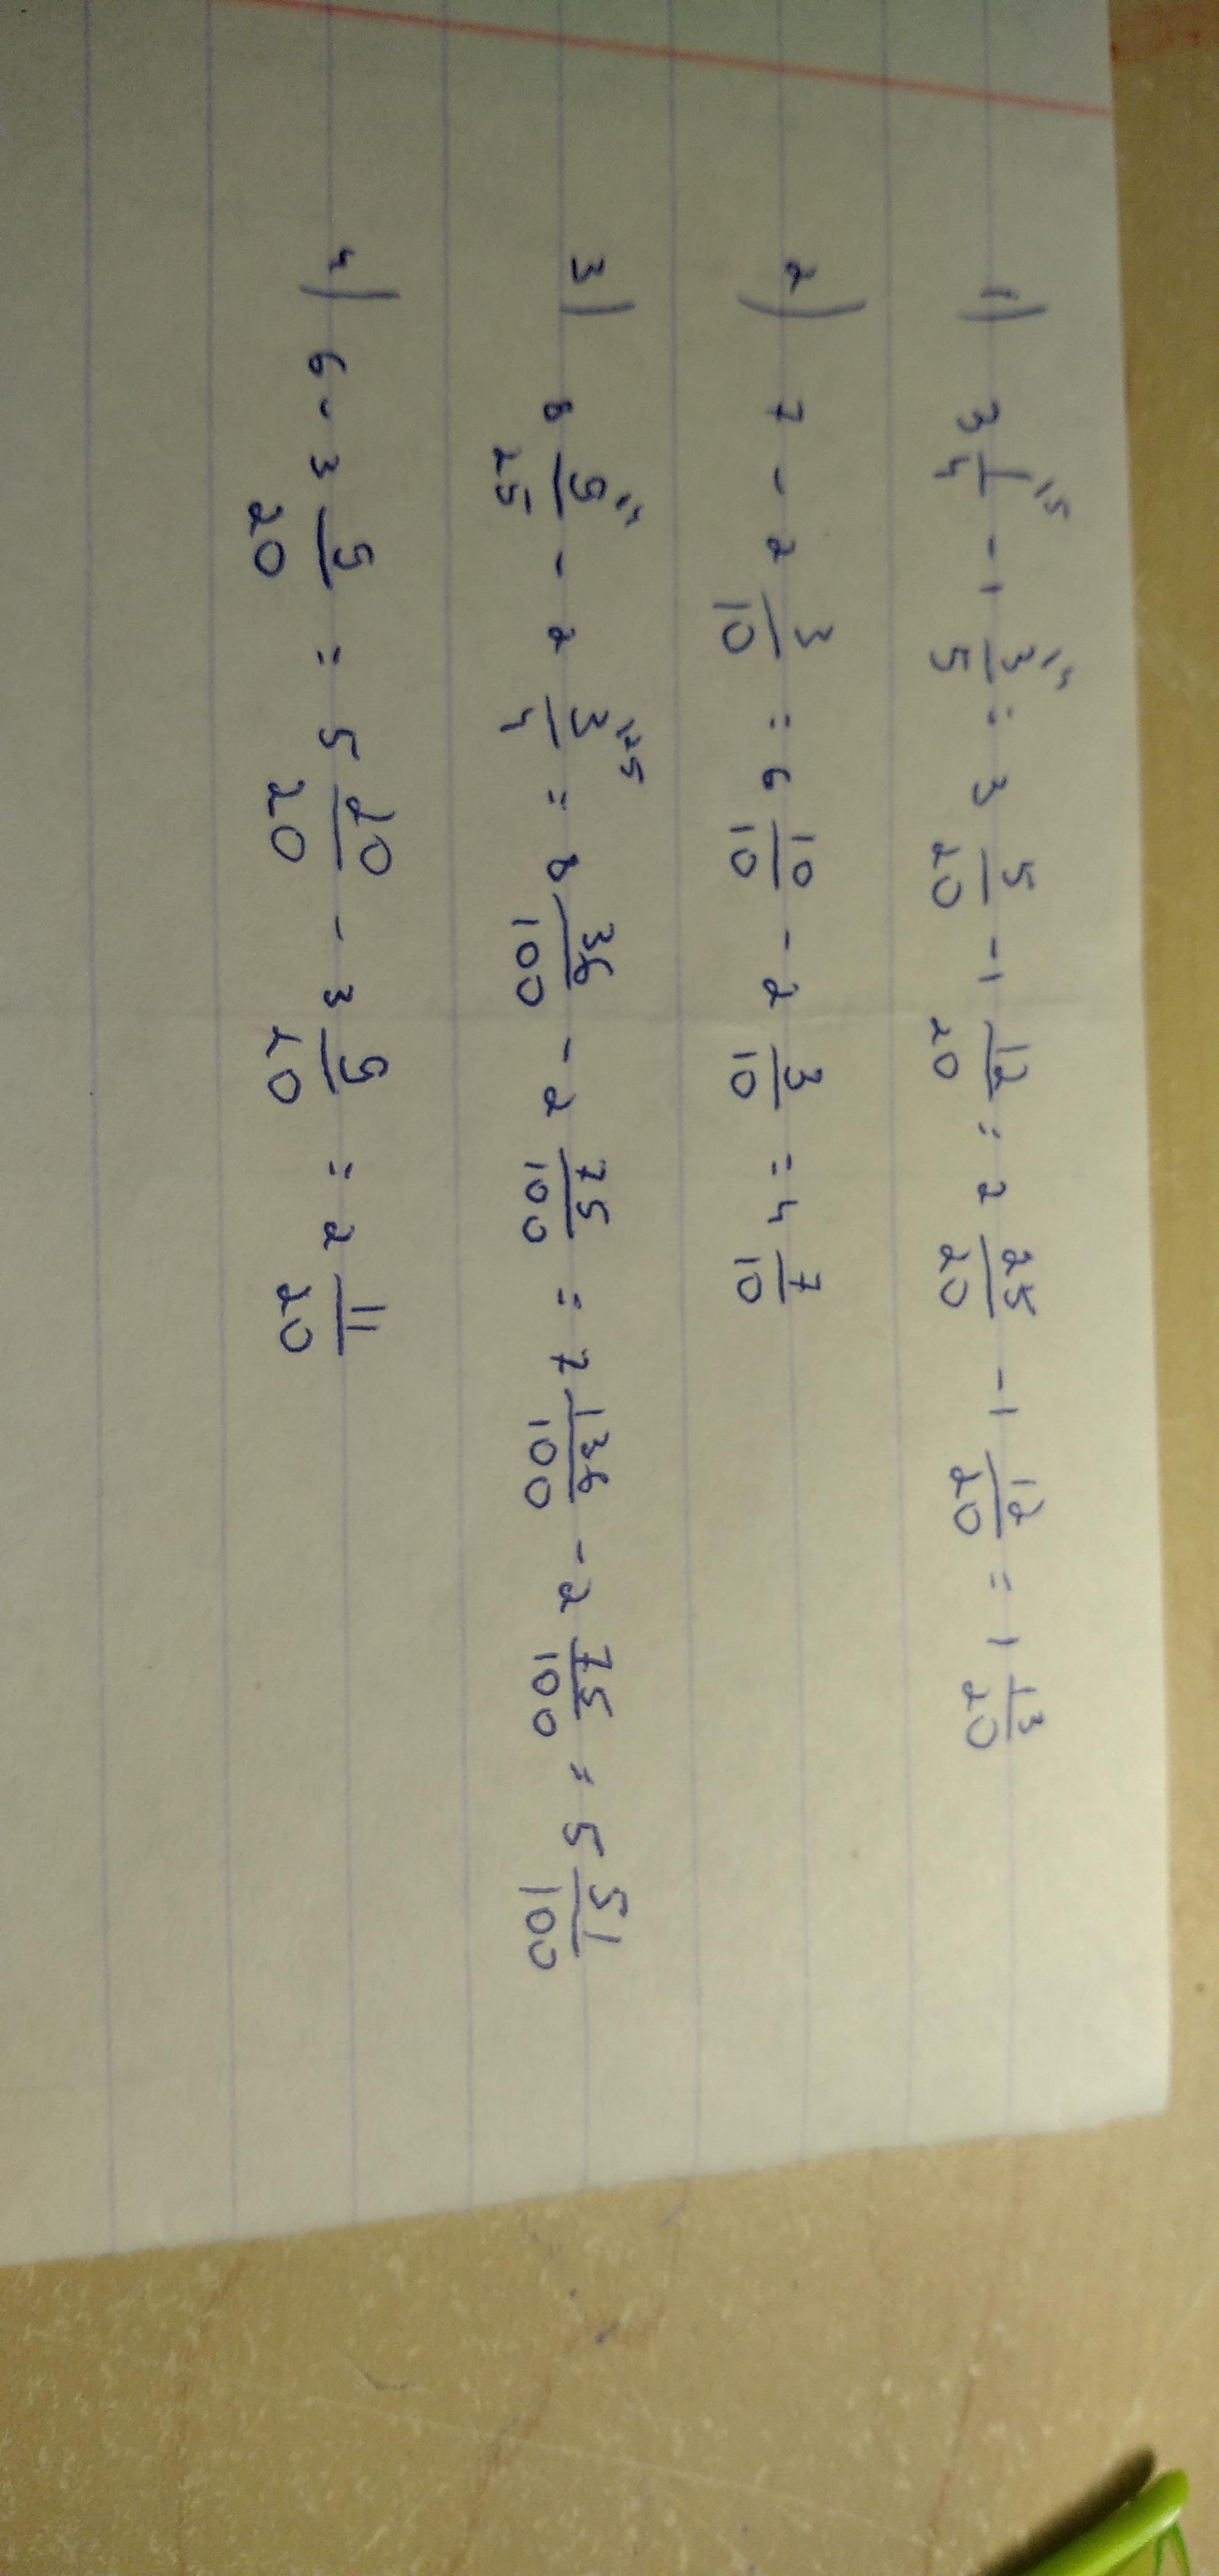 1) 3 1/4 ^{15} - 1 3/5 ^{14} = 3 5/20 - 1 12/20 = 2 25/20 - 1 12/20 = 1 13/20
2) 7 - 2 3/10 = 6 10/10 - 2 3/10 = 4 7/10
3) 8 9/25 ^{14} - 2 3/4 ^{125} = 8 36/100 - 2 75/100 = 7 136/100 - 2 75/100 = 5 51/100
4) 6 - 3 9/20 = 5 20/20 - 3 9/20 = 2 11/20